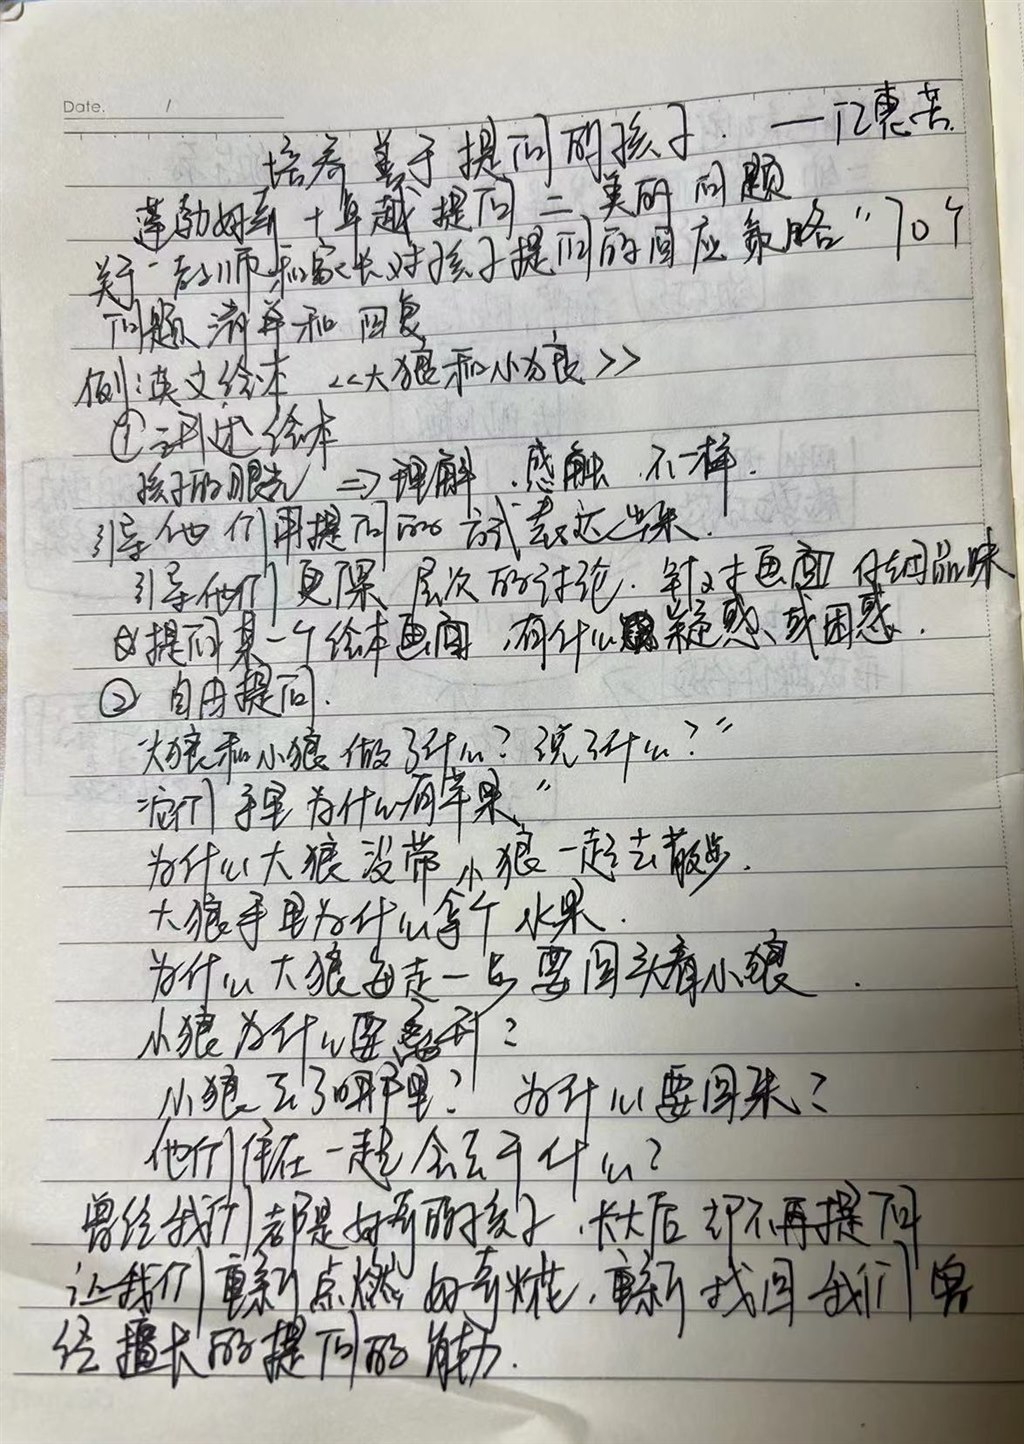 Date. /
培养善于提问的孩子. ——
蓬勃好奇 + 卓越提问 = 美的问题
关于"教师和家长对孩子提问的回应策略"70个
问题清单和回复
例:英文绘本 <<大狼和小狼>>
①讲述绘本
孩子的眼光 => 理解.感触.不一样.
引导他们用提问的方式表达出来.
引导他们更深层次的讨论.针对画面仔细品味
提问某一个绘本画面,有什么疑惑、或困惑.
② 自由提问.
大狼和小狼做了什么?说了什么?"
它们手里为什么有苹果"
为什么大狼没带小狼一起去散步.
大狼手里为什么拿个水果.
为什么大狼每走一步要回头看小狼.
小狼为什么要离开?
小狼去了哪里? 为什么要回来?
他们住在一起会去干什么?
曾经我们都是好奇的孩子,长大后却不再提问
让我们重新点燃好奇火花,重新找回我们曾
经擅长的提问的能力.